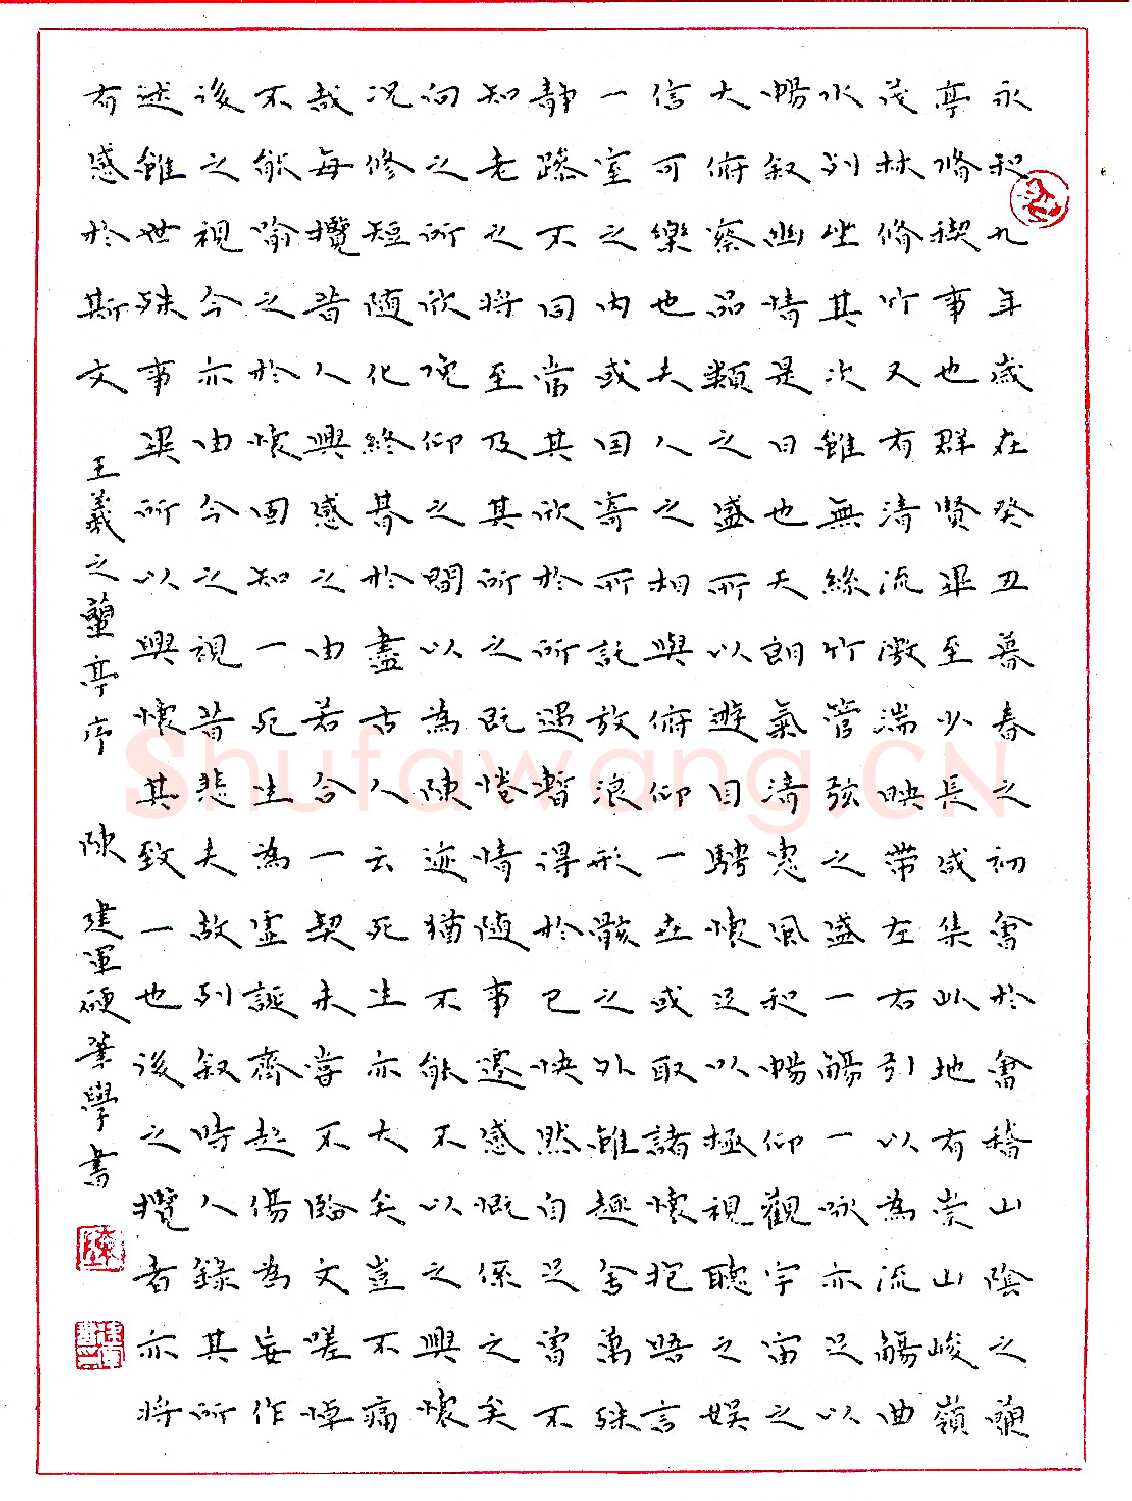 永和九年歲在癸丑暮春之初會於會稽山陰之蘭
亭脩禊事也群賢畢至少長咸集此地有崇山峻嶺
茂林脩竹又有清流激湍映帶左右引以為流觴曲
水列坐其次雖無絲竹管弦之盛一觴一詠亦足以
暢叙幽情是日也天朗氣清惠風和暢仰觀宇宙之
大俯察品類之盛所以遊目騁懷足以極視聽之娛
信可樂也夫人之相與俯仰一世或取諸懷抱晤言
一室之內或因寄所託放浪形骸之外雖趣舍萬殊
靜躁不同當其欣於所遇暫得於己快然自足曾不
知老之將至及其所之既倦情隨事遷感慨係之矣
向之所欣俛仰之間以為陳迹猶不能不以之興懷
況修短隨化終朞於盡古人云死生亦大矣豈不痛
哉每攬昔人興感之由若合一契未嘗不臨文嗟悼
不能喻之於懷固知一死生為虛誕齊彭殤為妄作
後之視今亦由今之視昔悲夫故列叙時人錄其所
述雖世殊事異所以興懷其致一也後之攬者亦將
有感於斯文
王羲之蘭亭序 陳建軍硬筆學書
Shufawang.CN